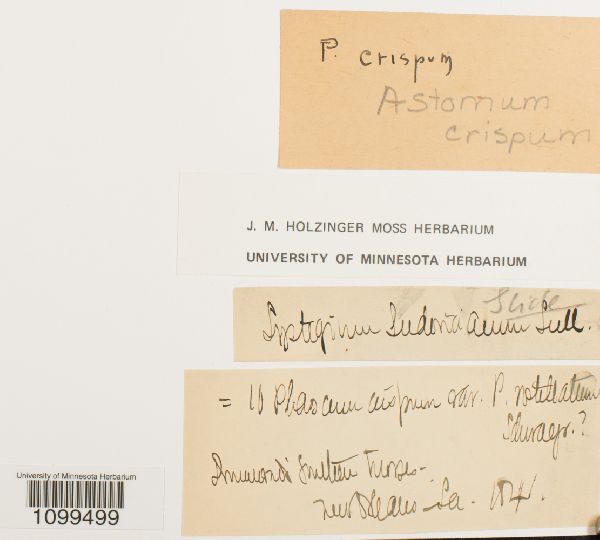 P. crispum
Astomum
crispum
J. M. HOLZINGER MOSS HERBARIUM
UNIVERSITY OF MINNESOTA HERBARIUM
Slide
Systegium Ludovicianum Sull.
= 10 Phascum crispum var. P. rostellatum
Schwaegr. ?
Drummond's Southern Mosses -
New Orleans - La. 1841.
University of Minnesota Herbarium
1099499